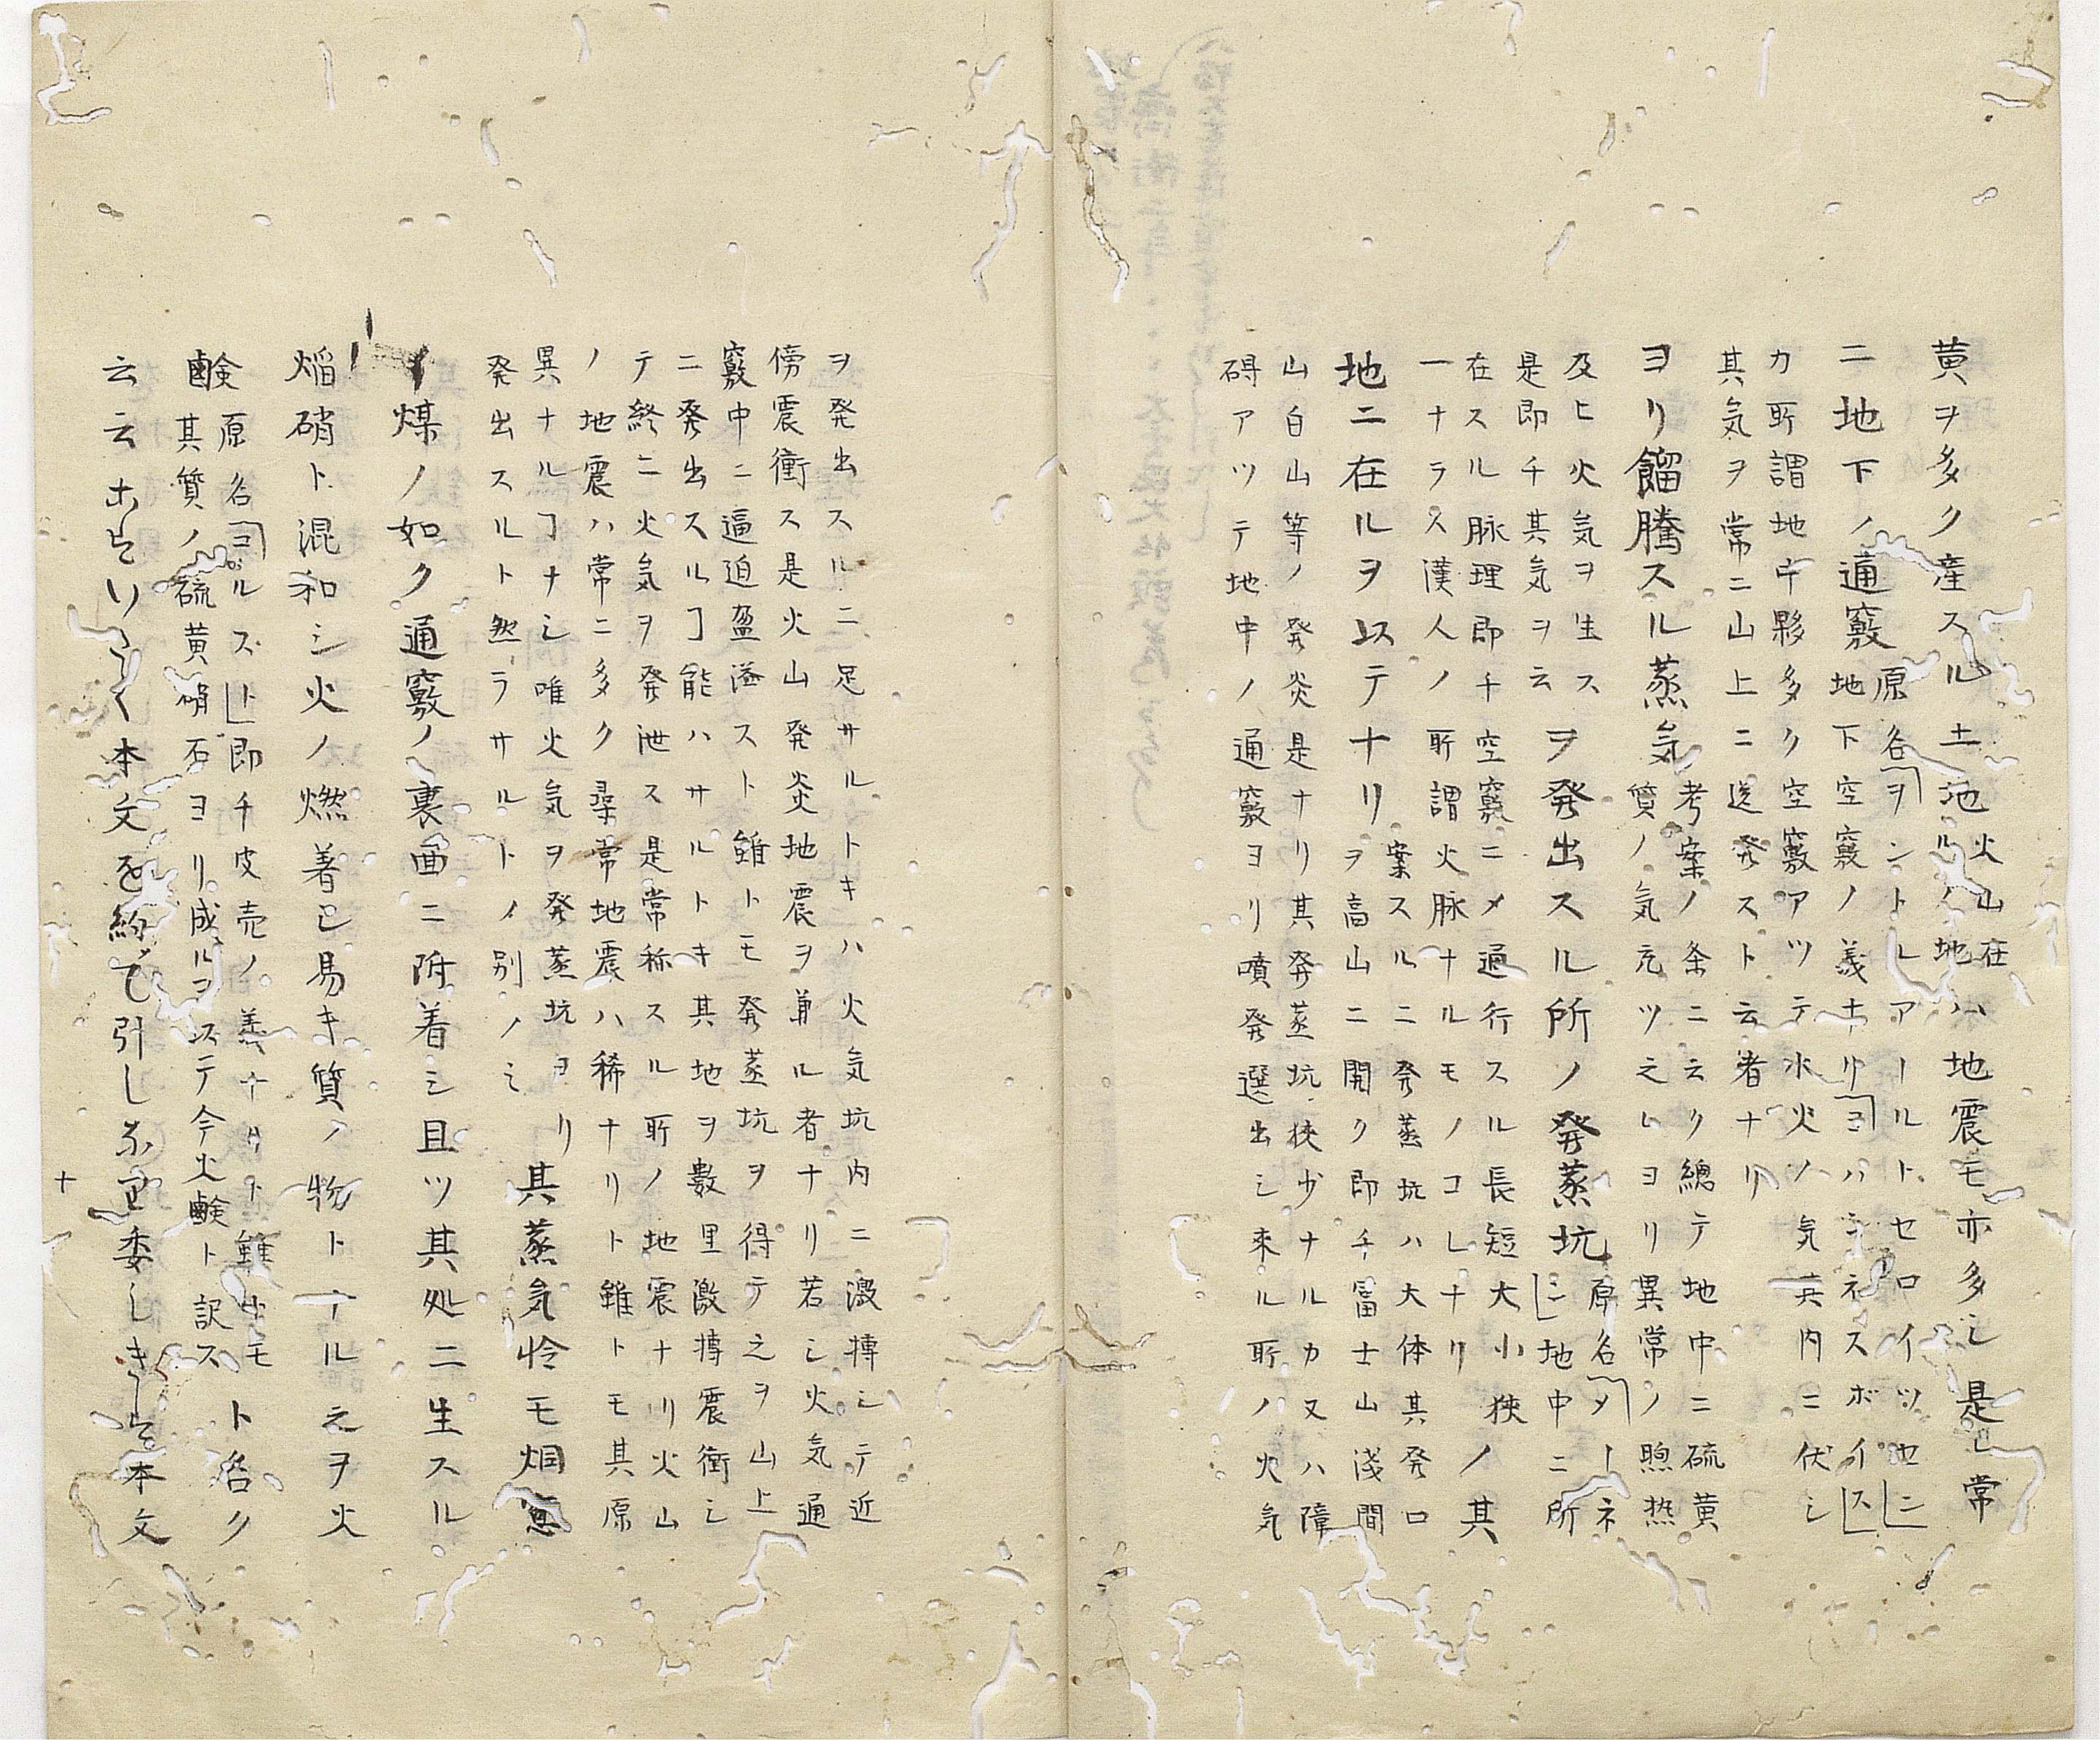 黄ヲ多ク産スル土地火山在ルノ地ハ地震モ亦多シ是レ常
ニ地下ノ通竅原名「ヲントルアールトセロイツセニ」
地下空竅ノ義ナリ「ヨハンネスボイス」
カ所謂地中夥多ク空竅アツテ水火ノ気其内ニ伏シ
其気ヲ常ニ山上ニ送発スト云者ナリ
ヨリ餾騰スル蒸気考案ノ条ニ云ク總テ地中ニ硫黄
質ノ気充ツ之レヨリ異常ノ煦热
及ヒ火気ヲ生ス
是即チ其気ヲ云ヲ発出スル所ノ発蒸坑原名「ダーネ
ン」地中ニ所
在スル脉理即チ空竅ニメ通行スル長短大小狭ノ其
一ナラス漢人ノ所謂火脉ナルモノコレナリ
地ニ在ルヲ以テナリ案スルニ発蒸坑ハ大体其発口
ヲ高山ニ開ク即チ富士山浅間
山白山等ノ発炎是ナリ其発蒸坑狭少ナルカ又ハ障
碍アツテ地中ノ通竅ヨリ噴発選出シ来ル所ノ火気
ヲ発出スルニ足サルトキハ火気坑内ニ激搏シテ近
傍震衝ス是火山発炎地震ヲ兼ル者ナリ若シ火気通
竅中ニ逼迫盈溢スト雖トモ発蒸坑ヲ得テ之ヲ山上
ニ発出スルヿ能ハサルトキ其地ヲ數里激搏震衝シ
テ終ニ火気ヲ発泄ス是常称スル所ノ地震ナリ火山
ノ地震ハ常ニ多ク尋常地震ハ稀ナリト雖トモ其原
異ナルヿナシ唯火気ヲ発蒸坑ヨリ
発出スルト然ラサルトノ別ノミ其蒸気恰モ烟窓
ノ煤ノ如ク通竅ノ裏面ニ附着シ且ツ其処ニ生スル
焰硝ト混和シ火ノ燃着シ易キ質ノ物トナル之ヲ火
鹸原名「コルスト」即チ皮売ノ義ナリト雖トモ
其質ノ硫黄硝石ヨリ成ルヲ以テ今火鹸ト訳スト名ク
云云
本文を約て引しな委しきし本文
十